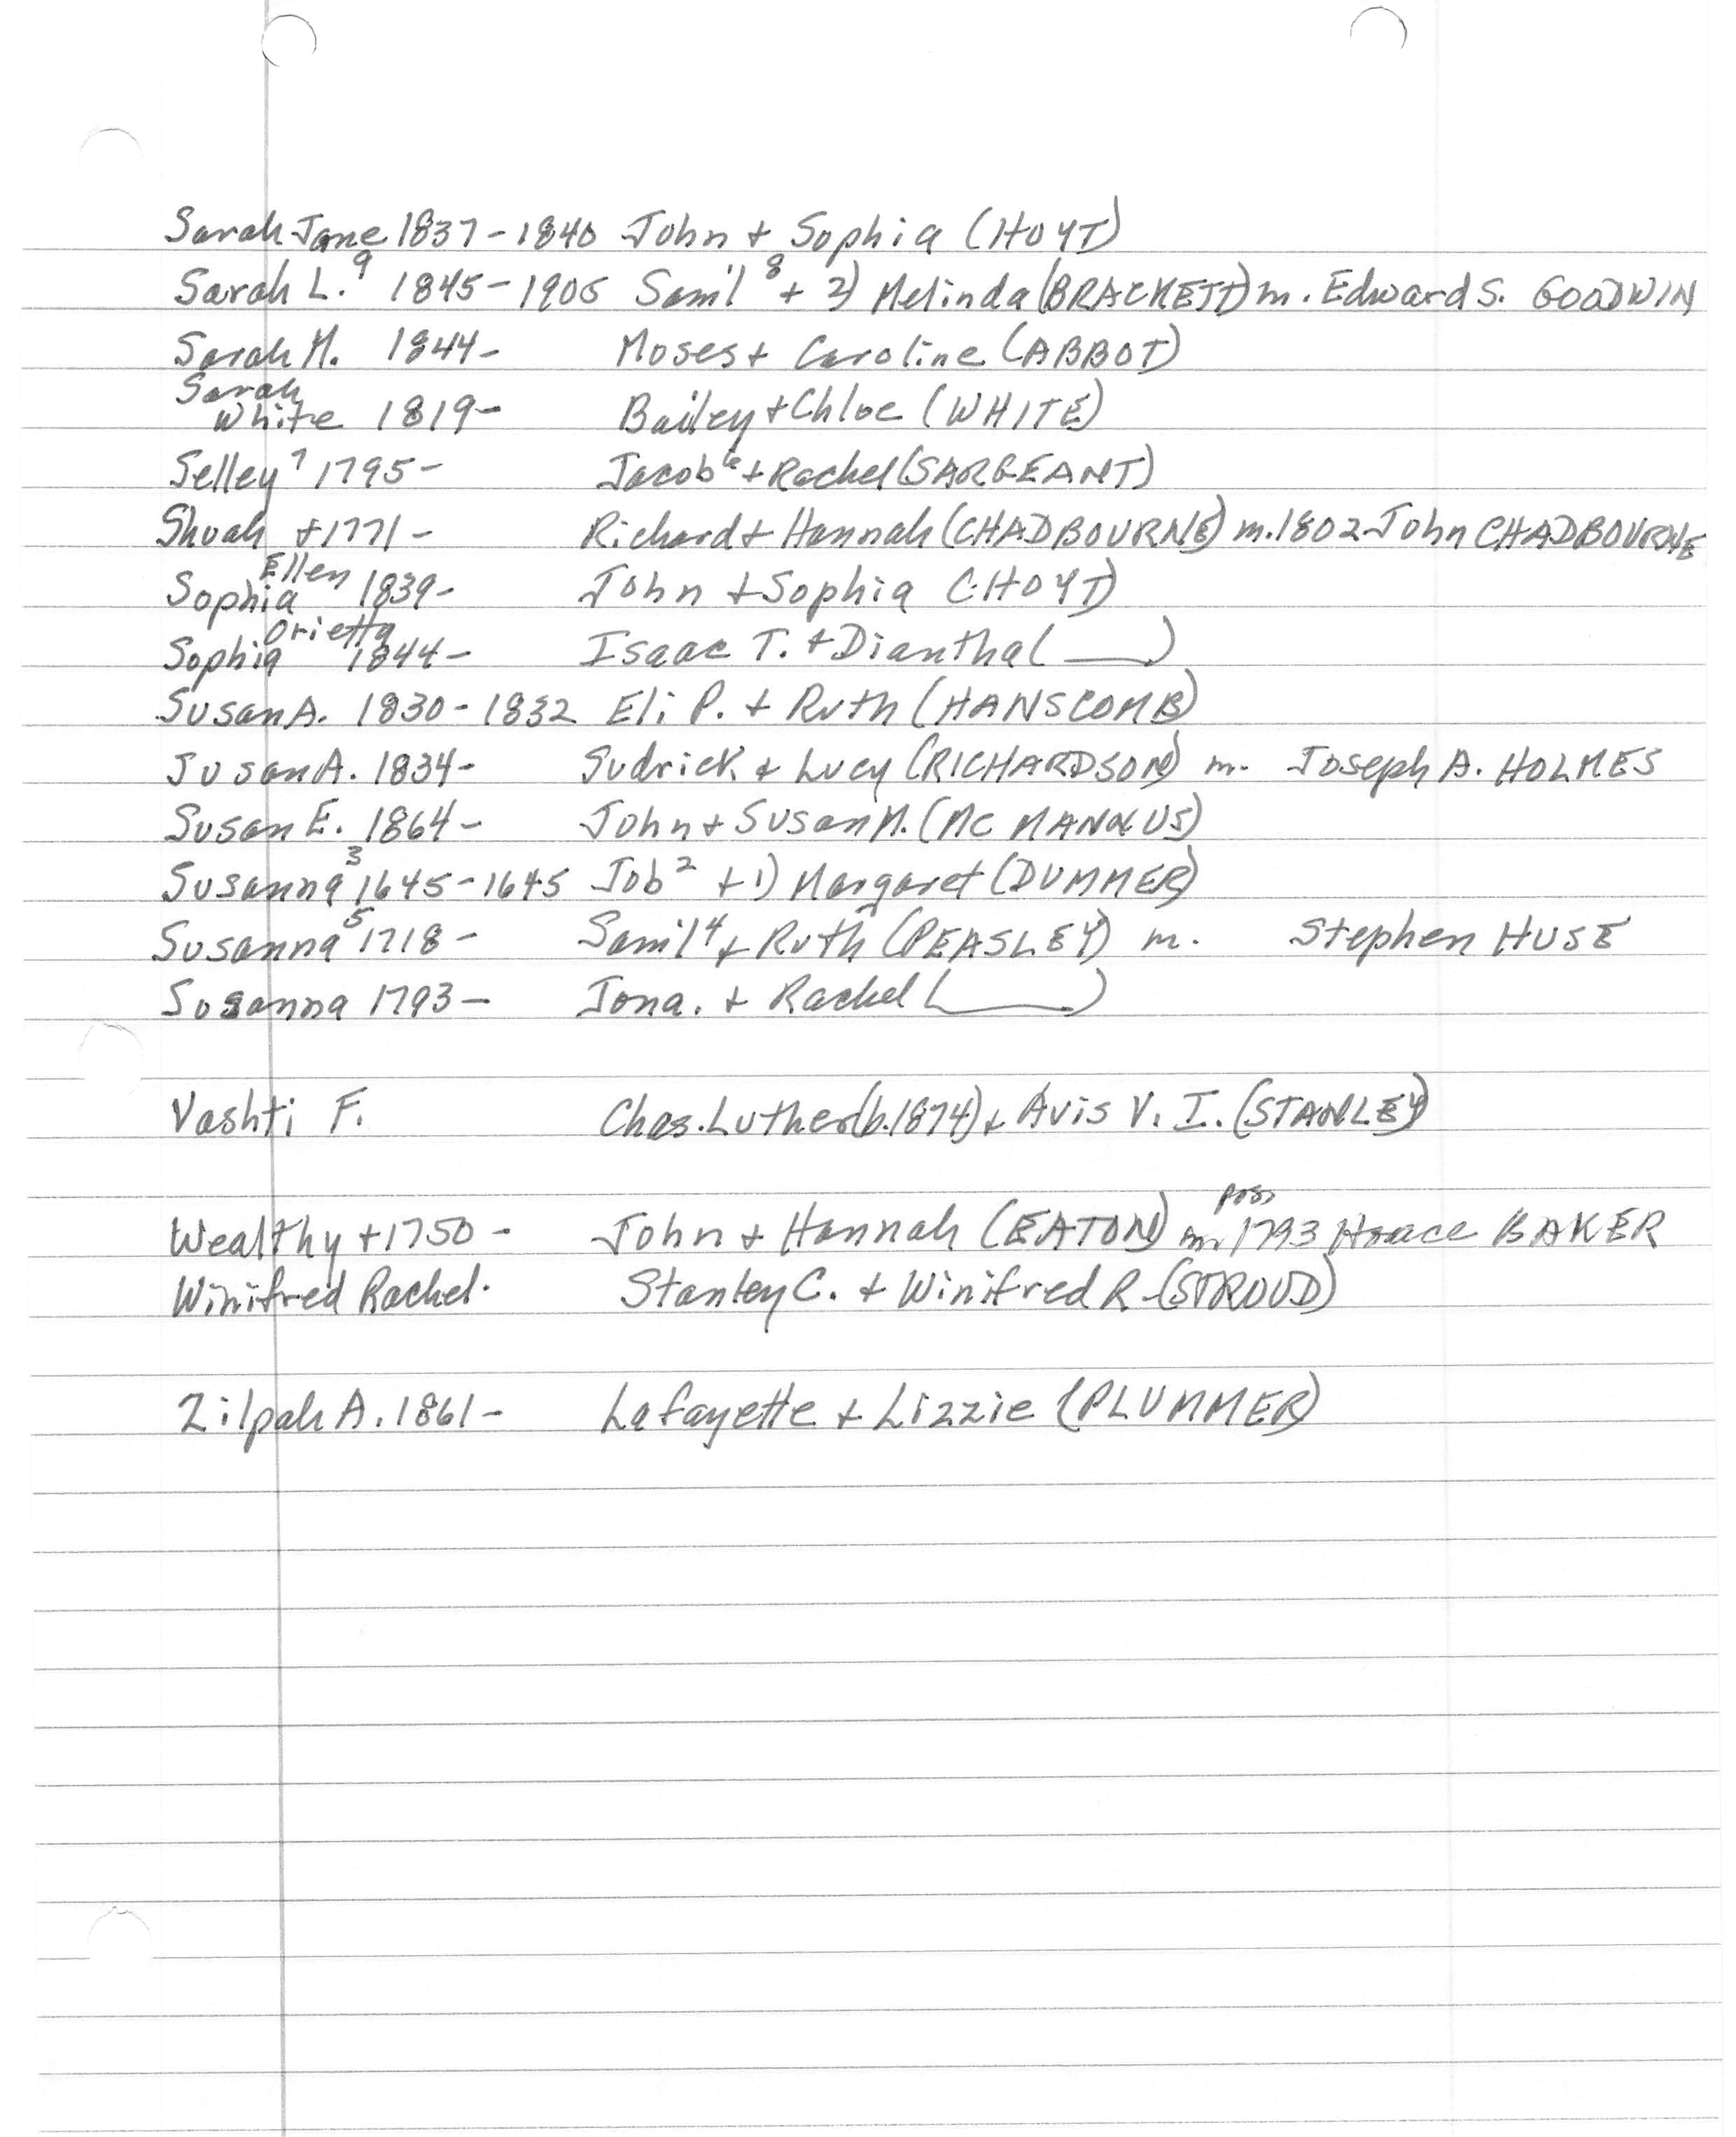 Sarah Jane 1837-1840 John + Sophia (HOYT)
Sarah L.⁹ 1845-1905 Saml⁸ + 2) Melinda (BRACKETT) m. Edward S. GOODWIN
Sarah M. 1844- Moses + Caroline (ABBOT)
Sarah
White 1819- Bailey + Chloe (WHITE)
Selley⁷ 1795- Jacob⁶ + Rachel (SARGEANT)
Shuah ±1771- Richard + Hannah (CHADBOURNE) m. 1802 John CHADBOURNE
Sophia Ellen 1839- John + Sophia (HOYT)
Sophia Orietta 1844- Isaac T. + Diantha (___)
Susan A. 1830-1832 Eli P. + Ruth (HANSCOMB)
Susan A. 1834- Sudrick + Lucy (RICHARDSON) m. Joseph A. HOLMES
Susan E. 1864- John + Susan M. (Mc MANUS)
Susanna³ 1645-1645 Job² + 1) Margaret (DUMMER)
Susanna⁵ 1718- Saml⁴ + Ruth (PEASLEY) m. Stephen HUSE
Susanna 1793- Jona. + Rachel (___)
Vashti F. Chas. Luther (b. 1874) + Avis V. I. (STANLEY)
Wealthy ±1750- John + Hannah (EATON) poss m 1793 Horace BAKER
Winifred Rachel. Stanley C. + Winifred R. (STROUD)
Zilpah A. 1861- Lafayette + Lizzie (PLUMMER)